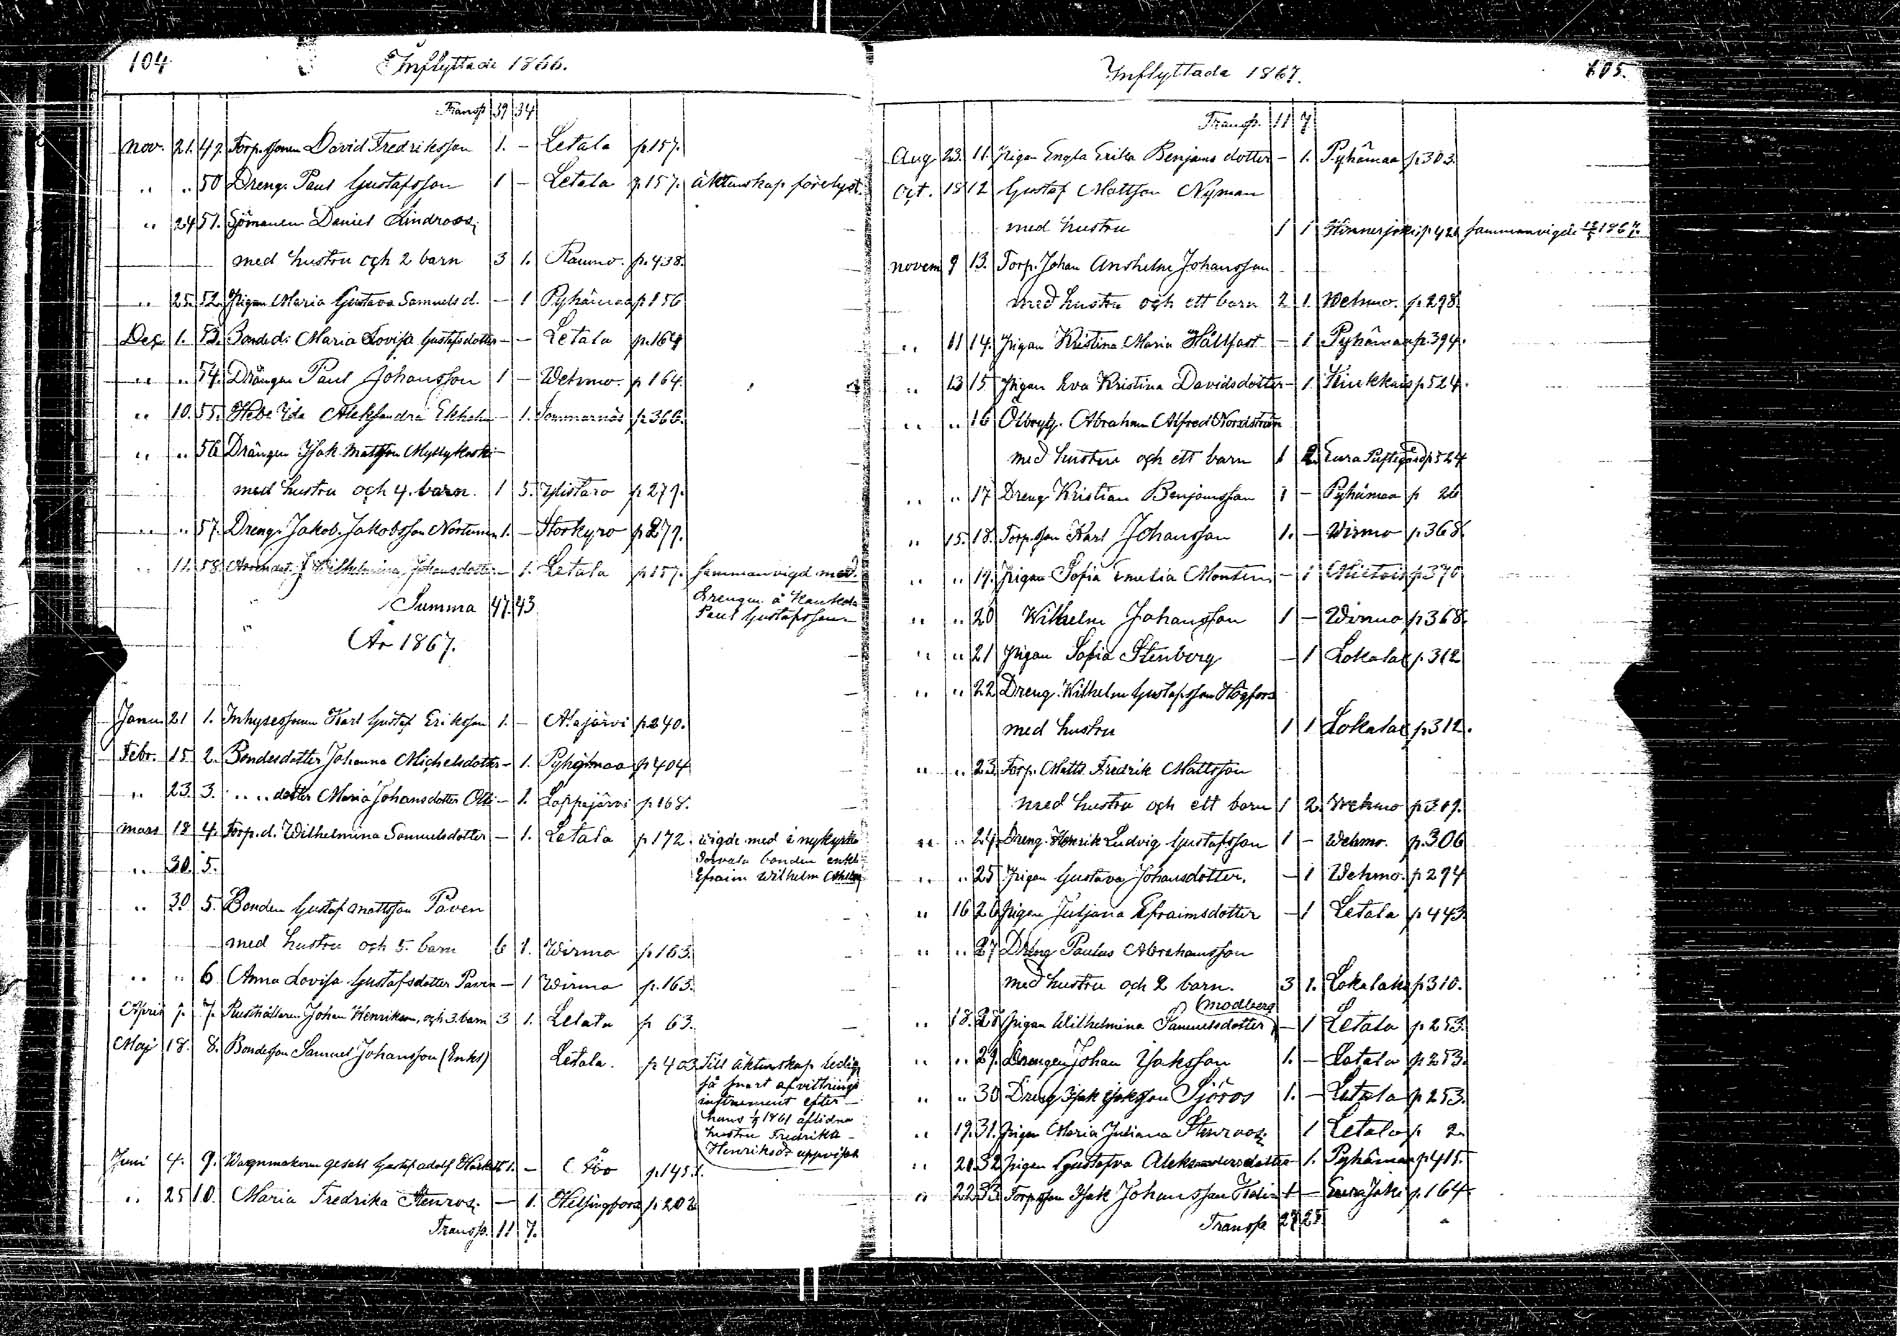 104
Inflyttade 1866.
Transp 39 34
Nov. 21. 49. Torp.sonen David Fredriksson 1. – Letala p.157.
" " 50 Dreng. Paul Gustafsson 1 – Letala p.157. äktenskap förelyst.
" 24 51. Sjömanen Daniel Lindroos
med hustru och 2 barn 3 1. Raumo. p.438.
" 25. 52. Pigan Maria Gustava Samuelsd. – 1 Pyhämaa p156
Dec. 1. 53. Bonded: Maria Lovisa Gustafsdotter – – Letala p.164
" " 54. Drängen Paul Johansson 1 – Wehmo. p.164.
" 10. 55. Ida Aleksandra Ekholm – 1. p.366.
" " 56 Drängen Isak Mattsson Myllykoski
med hustru och 4. barn. 1 5. Ylistaro p.279.
" " 57. Dreng. Jakob Jakobsson 1. – Storkyro p.279.
" 11. 58. Wilhelmina Johansdotter – 1. Letala p.157. sammanvigd med.
Drengen å
Paul Gustafsson
Summa 47. 43
År 1867.
Janu 21 1. Inhysessonen Karl Gustaf Eriksson 1. – Alajärvi p.240.
Febr. 15 2. Bondesdotter Johanna Michelsdotter – 1. Pyhämaa p404
" 23. 3. " " dotter Maria Johansdotter – 1. Lappajärvi p.168.
mars 18 4. Torp.d. Wilhelmina Samuelsdotter – 1. Letala p.172. vigde med i nykyrko
bonden enkl.
Efraim Wilhelm
" 30. 5.
" 30 5. Bonden Gustaf Mattsson Paven
med hustru och 5. barn 6 1. Wirmo p.163.
" " 6 Anna Lovisa Gustafsdotter Paven – 1 Wirmo p.163.
April 7. Rusthållaren Johan Henriksson, och 3 barn 3 1. Letala p 63.
Maj 18. 8. Bondesson Samuel Johansson (Enkl) Letala. p.403. till äktenskap ledig
så snart afvittrings
instrument efter
hans 1861 aflidna
hustru Fredrika
Henriksd. uppvisat
Juni 4. 9. Wagnmakaren gesäll Gustaf Adolf 1. – Åbo p.145.
" 25 10. Maria Fredrika Stenroos. – 1. Helsingfors p.202
Transp. 11 7.
105.
Inflyttada 1867.
Transp. 11 7
Aug. 23. 11. Pigan Engla Erika Benjamsdotter – 1. Pyhämaa p303.
Oct. 18 12 Gustaf Mattsson Nyman
med hustru 1 1 Hinnerjoki p.421 sammanvigde 1867.
Novem 9 13. Torp. Johan Anshelm Johansson
med hustru och ett barn 2 1. Wehmo. p.298.
" 11 14. Pigan Kristina Maria Hållfast – 1 Pyhämaa p.394.
" 13 15 Pigan Eva Kristina Davidsdotter – 1. Kiukkais p524.
" " 16 Abraham Alfred Nordström
med hustru och ett barn 1 2. Eura p524
" " 17 Dreng Kristian Benjamsson 1 – Pyhämaa p 26
" 15. 18. Torp.son Karl Johansson 1. – Wirmo p.368.
" " 19. Pigan Sofia Emelia Monten – 1 Mietois p.370
" " 20 Wilhelm Johansson 1 – Wirmo p.368.
" " 21 Pigan Sofia Stenberg – 1 Lokalax p.312
" " 22 Dreng. Wilhelm Gustafsson Högfors
med hustru 1 1 Lokalax p.312.
" " 23. Torp. Matts Fredrik Mattsson
med hustru och ett barn 1 2. Wehmo p.319.
" " 24. Dreng. Henrik Ludvig Gustafsson 1 – Wehmo. p.306
" " 25 Pigan Gustava Johansdotter. – 1 Wehmo. p.294
" 16 26 Pigan Juljana Efraimsdotter – 1 Letala p443.
" " 27 Dreng Paulus Abrahamsson
med hustru och 2 barn. 3 1. Lokalaks p.310.
" 18. 28 Pigan Wilhelmina Samuelsdotter (Modberg) – 1 Letala p.253.
" " 29. Drengen Johan Isaksson 1. – Letala p.253.
" " 30 Dreng Isak Isaksson Sjöros 1. – Letala p.253.
" 19. 31. Pigan Maria Juliana Stenroos 1 Letala p 2.
" 20. 32 Pigan Gustafva Aleksandersdotter – 1. Pyhämaa p.415.
" 22. 33. Torp.son Isak Johansson 1 – Eurajoki p.164
Transp 27 25